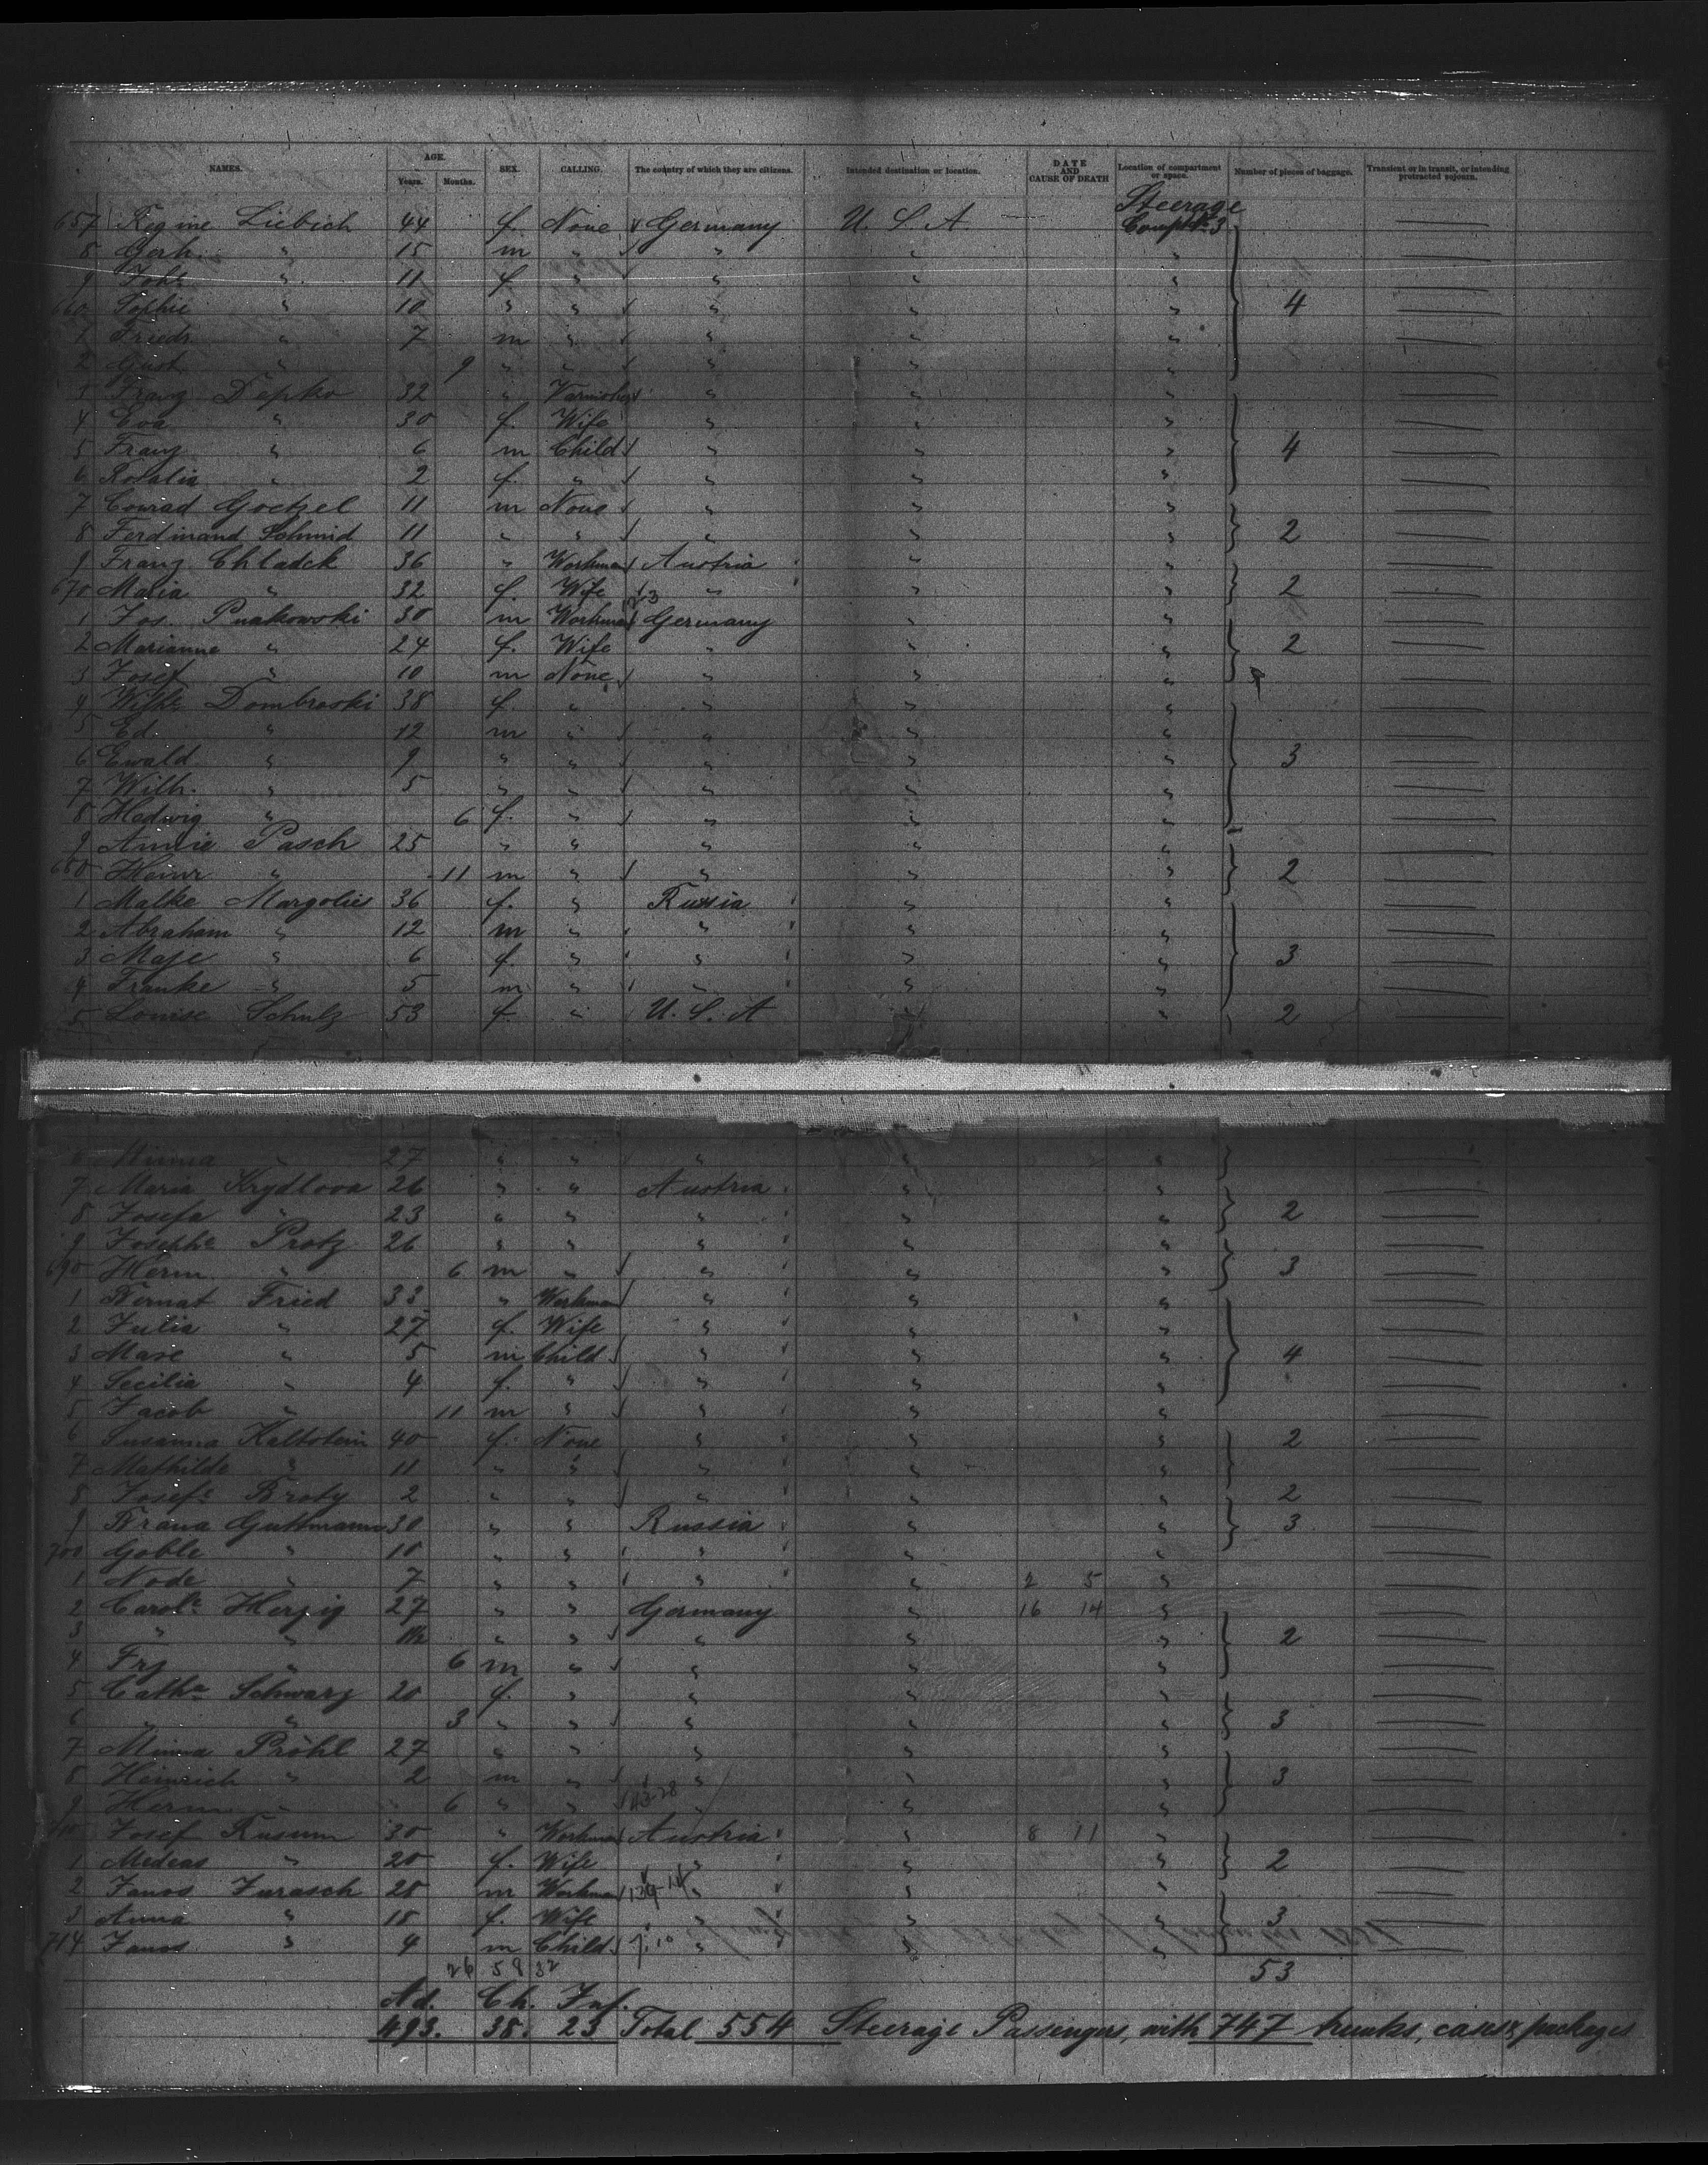 NAMES. AGE. Years. Months. SEX. CALLING. The country of which they are citizens. Intended destination or location. DATE AND CAUSE OF DEATH Location of compartment or space. Number of pieces of baggage. Transient or in transit, or intending protracted sojourn.
Steerage
657 Regine Liebich 44 f. None Germany U. S. A. Compt. 3
8 Gerh. " 15 m " " " "
9 Joh. " 11 f " " " "
660 Sophie " 10 " " " " " 4
1 Friedr. " 7 m " " " "
2 Gust. " 9 " " " " "
3 Franz Depko 32 " " " "
4 Eva " 30 f. Wife " " "
5 Franz " 6 m Child " " " 4
6 Rosalia " 2 f. " " " "
7 Conrad Goetzel 11 m None " " "
8 Ferdinand Schmid 11 " " " " " 2
9 Franz Chladek 36 " Workman Austria " "
670 Maria " 32 f. Wife " " " 2
1 Jos. 30 m Workman Germany " "
2 Marianne " 24 f. Wife " " " 2
3 Josef " 10 m None " " "
4 Wilhe Dombroski 38 f. " " " "
5 Ed. " 12 m " " " "
6 Ewald " 9 " " " " " 3
7 Wilh. " 5 " " " " "
8 Hedwig " 6 f. " " " "
9 Annie Pasch 25 " " " " "
680 Heinr " 11 m " " " " 2
1 Malke Margolies 36 f. " Russia " "
2 Abraham " 12 m " " " "
3 Mase " 6 f. " " " " 3
4 Franke " 5 m " " " "
5 Louise Schulz 53 f. " U. S. A " " 2
6 Minna " 27 " " " " "
7 Maria Krydlova 26 " " Austria " "
8 Josefa " 23 " " " " " 2
9 Josephe Protz 26 " " " " "
690 Herm. " 6 m " " " " 3
1 Bernat Fried 33 " Workman " " "
2 Julia " 27 f. Wife " " "
3 Mare " 5 m Child " " " 4
4 Secilia " 4 f. " " " "
5 Jacob " 11 m " " " "
6 Susanna Kaltstein 40 f. None " " " 2
7 Mathilde " 11 " " " " "
8 Josefe 2 " " " " " 2
9 Brana Guttmann 30 " " Russia " " 3
700 Goble " 10 " " " " "
1 Node " 7 " " " " 2 5 "
2 Carole Herzig 27 " " Germany " 16 14 "
3 " " " " " " " 2
4 Frz " 6 m " " " "
5 Catha Schwarz 20 f. " " " "
6 " " 3 " " " " " 3
7 Minna Pröhl 27 " " " " "
8 Heinrich " 2 m " " " " 3
9 Herm " 6 " " " "
Josef Rusum 30 " Workman Austria " 8 11 "
1 " 20 f. Wife " " " 2
2 Janos Jurasch 28 m Workman " " "
3 Anna " 18 f. Wife " " " 3
714 Janos " 4 m Child " " "
26 58 32 53
Ad. Ch. Inf.
493. 38. 23 Total 554 Steerage Passengers, with 747 trunks, cases & packages